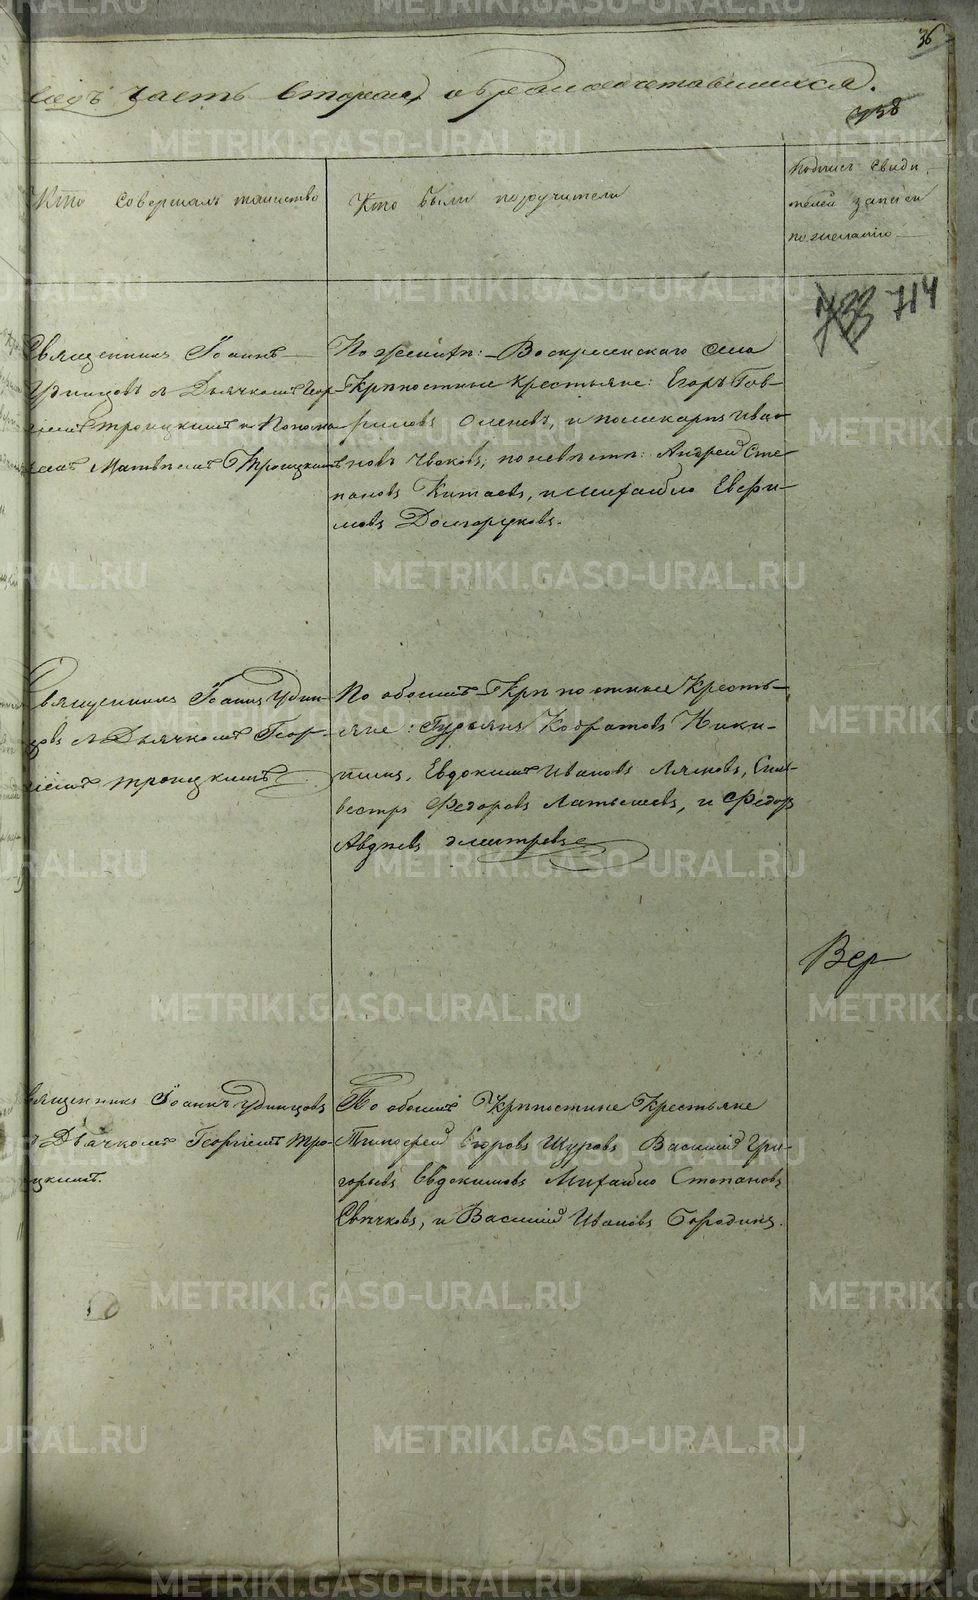 36
годъ часть вторая, о бракосочетавшихся.
738
Кто совершалъ таинство
Кто были поручители
Подпись свиде
телей записи
по желанію
733 714
Священникъ Іоаннъ
Удинцовъ съ Дьячкомъ Геор
гіемъ Троицкимъ и Понома
remъ Матвѣемъ Троицкимъ
По женихѣ: Воскресенскаго Села
крѣпостные крестьяне: Егоръ Гав-
риловъ Оленевъ, и Поликарпъ Ива-
новъ Чваковъ; по невѣстѣ: Андрей Сте-
пановъ Китаевъ, и Михайло Евфи-
мовъ Долгоруковъ.
Священникъ Іоаннъ Удин-
цовъ съ Дьячкомъ Геор-
гіемъ Троицкимъ
По обоимъ Крѣпостные Кресть-
яне: Гурьянъ Кодратовъ Ники-
тинъ, Евдокимъ Ивановъ Лямовъ, Сил-
вестръ Федоровъ Латышевъ, и Федоръ
Авдѣевъ Дмитревъ
Вер
Священникъ Іоаннъ Удинцовъ
съ Дьячкомъ Георгіемъ Трои-
цкимъ.
По обоимъ Крѣпостные Крестьяне
Тимофей Егоровъ Щуровъ Василій Гри-
горьевъ Евдокимовъ Михайло Степановъ
Свѣчковъ, и Василій Ивановъ Бородинъ.
METRIKI.GASO-URAL.RU